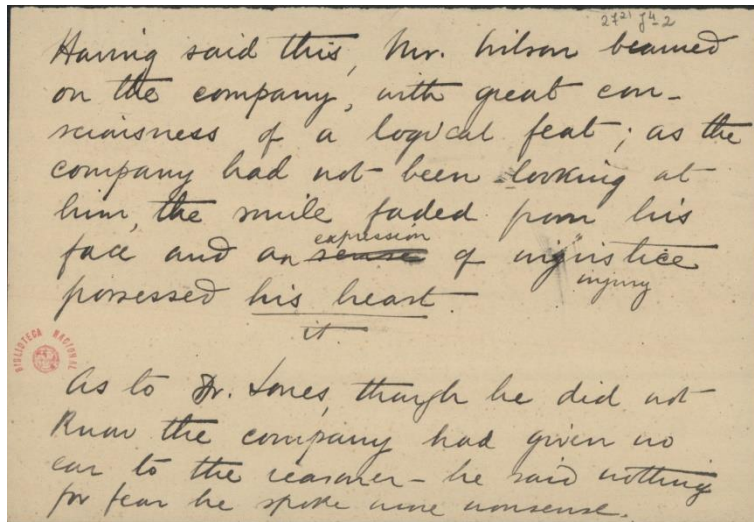 27 21 J4-2
Having said this, Mr. Wilson beamed
on the company, with great con-
sciousness of a logical feat; as the
company had not been looking at
him, the smile faded from his
expression
face and an sense of injustice
injury
possessed his heart.
it
BIBLIOTECA NACIONAL
As to Dr. Jones, though he did not
know the company had given no
ear to the reasoner – he said nothing
for fear he spoke more nonsense.